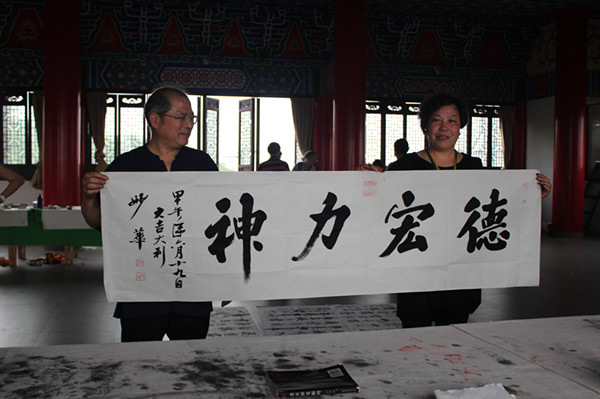 德宏力神
甲午年六月十九日
大吉大利
妙華